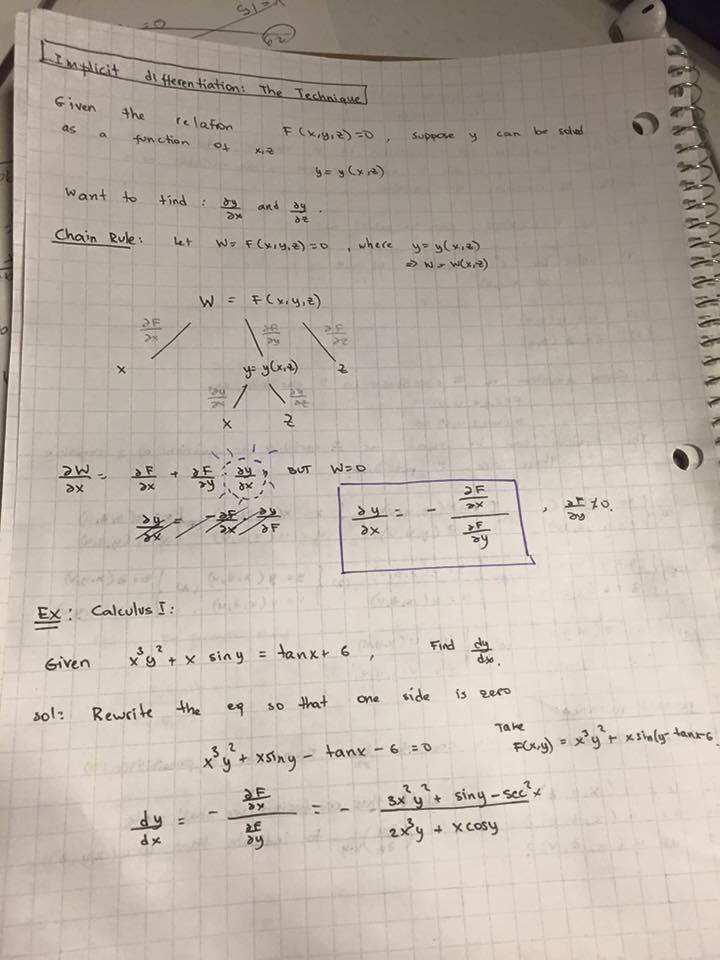 Implicit differentiation: The Technique
Given the relation F(x,y,z)=0, suppose y can be solved
as a function of x,z
y = y(x,z)
Want to find: ∂y/∂x and ∂y/∂z.
Chain Rule: Let W = F(x,y,z)=0, where y = y(x,z)
⇒ W = W(x,z)
W = F(x,y,z)
∂F/∂x ∂F/∂y ∂F/∂z
x y = y(x,z) z
∂y/∂x ∂y/∂z
x z
∂W/∂x = ∂F/∂x + ∂F/∂y · ∂y/∂x, BUT W=0
∂y/∂x = -∂F/∂x · ∂y/∂F
∂y/∂x = - (∂F/∂x)/(∂F/∂y), ∂F/∂y ≠ 0.
Ex: Calculus I:
Given x³y² + x siny = tanx + 6, Find dy/dx.
sol: Rewrite the eq so that one side is zero
x³y² + xsiny - tanx - 6 = 0
Take
F(x,y) = x³y² + xsin(y - tanx - 6
dy/dx = - (∂F/∂x)/(∂F/∂y) = - (3x²y² + siny - sec²x)/(2x³y + xcosy)